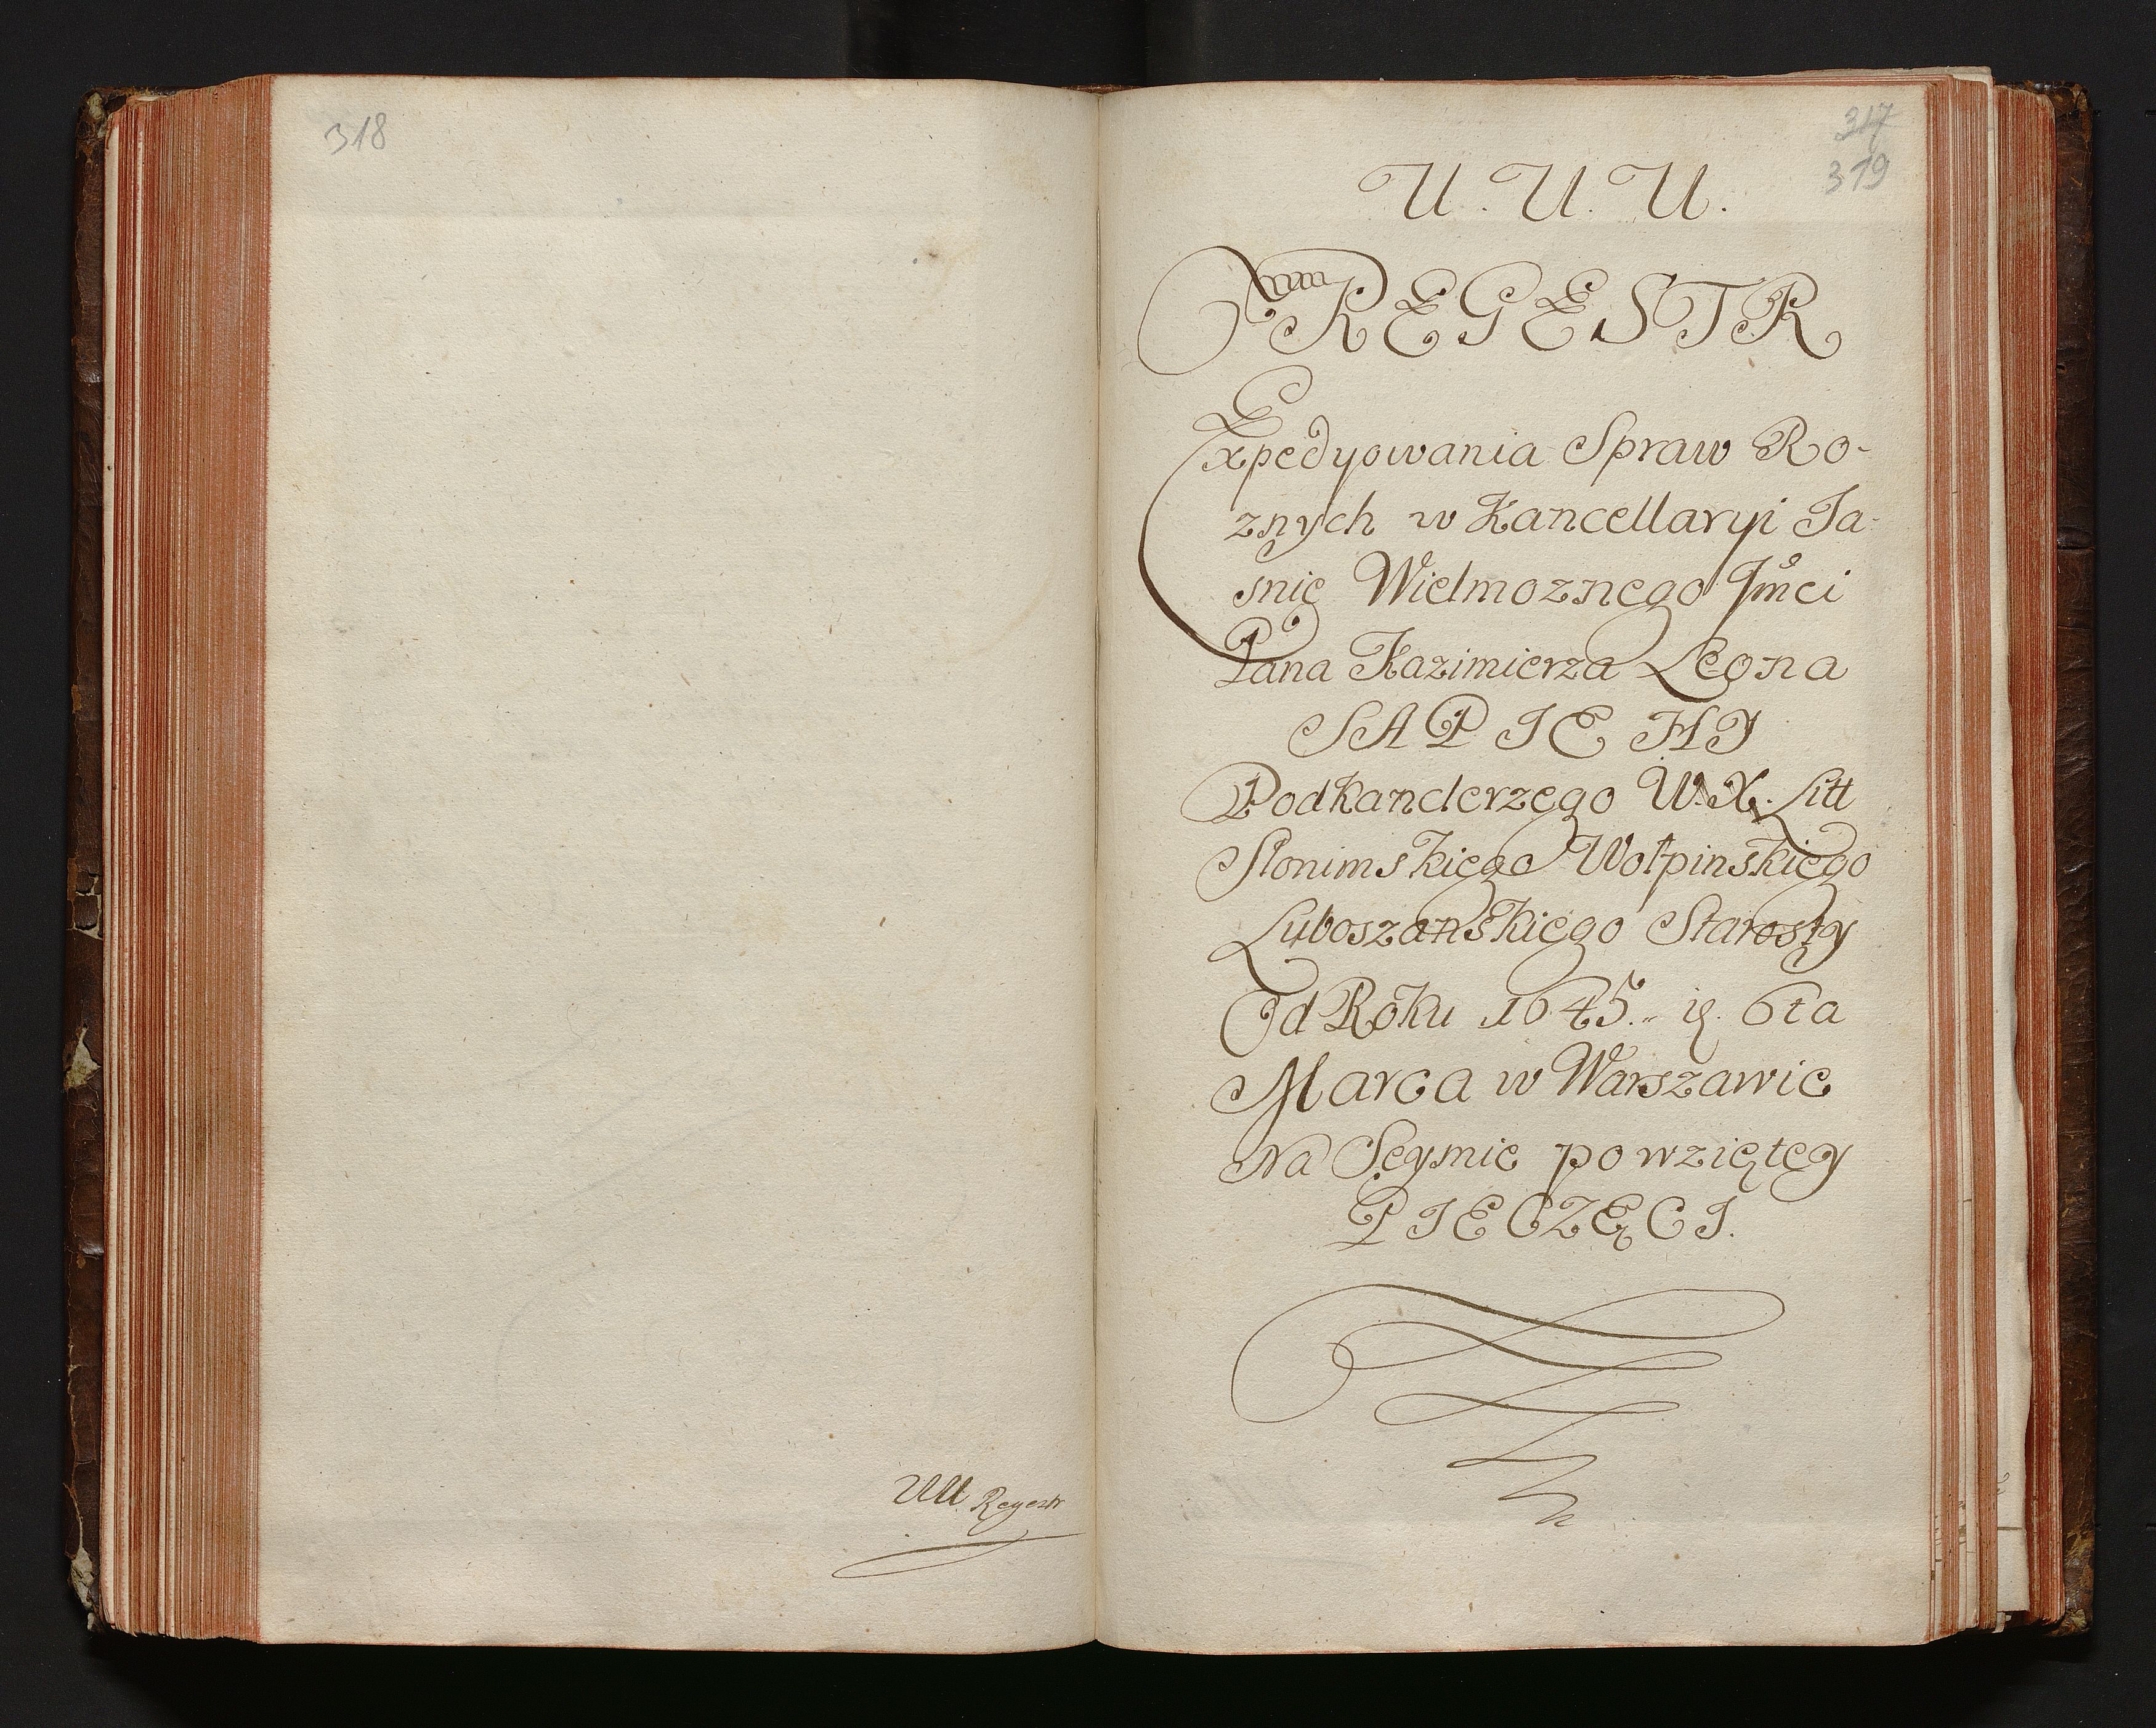 318
UU. Regestr
317
319
U. U. U.
REGESTR
Expedyowania Spraw Ro-
znych w Kancellaryi Ja-
snie Wielmoznego Jmci
Pana Kazimierza Leona
SAPIEHY
Podkanclerzego W. X. Litt
Słonimskiego Wołpinskiego
Luboszanskiego Starosty
Od Roku 1645. 6ta
Marca w Warszawie
Na Seymie powziętey
PIECZĘCI.